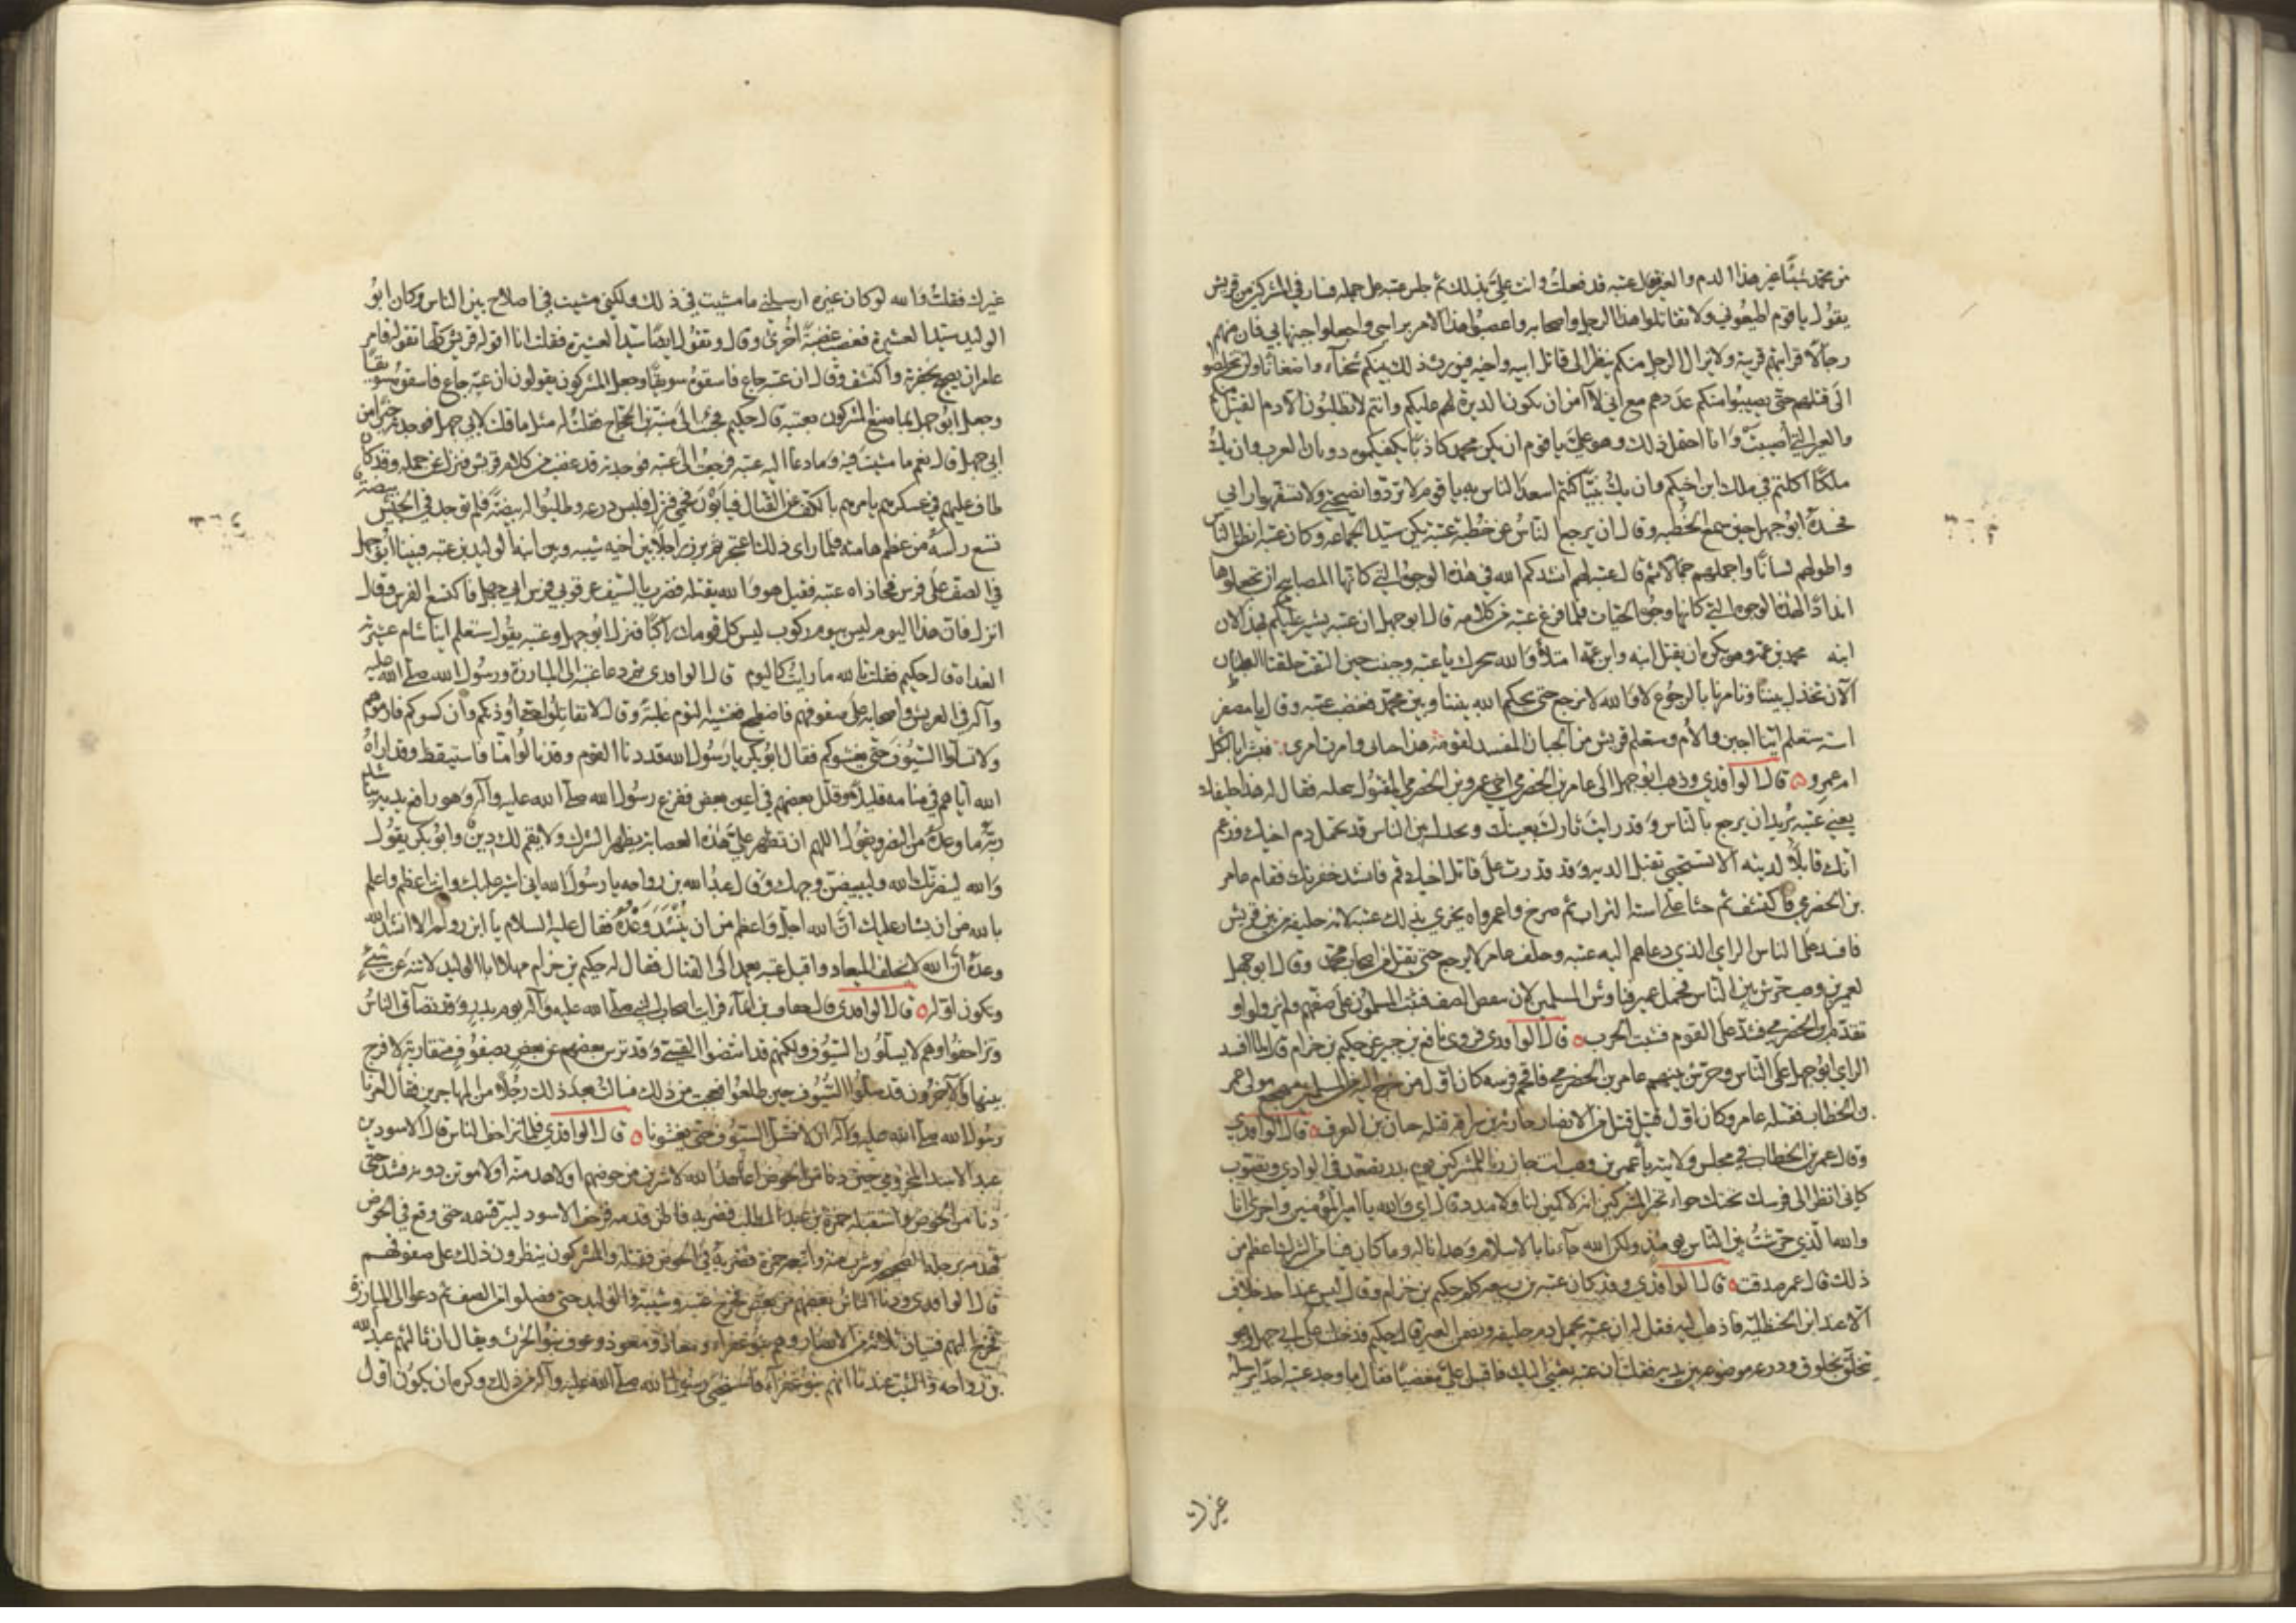 من محمد شيئا غير هذا الدم والعير فقال عتبه قد فعلتُ وانت عليَّ بذلك ثم جلس عتبه على جمله فسار في المشركين من قريش
يقوُل يا قوم اطيعُوني ولا تقاتلوا هذا الرجل واصحابه واعصبُوا هذا الامر براسي واجعلوا جبنها بي فان منهم
رجالًا قرابتهم قريبة ولا يزال الرجل منكم ينظر الى قاتل ابيه واخيه فيورث ذلك بينكم شحناء واضغانًا ولن تخلصُوا
الى قتلهم حتى يصيبُوا منكم عددهم مع اني لا آمن ان يكون الدبرة لهم عليكم وانتم لا تطلبُون الا دم القتيل منكم
والعير التي أصيبتْ وَانا احتمل ذلك وهو علىَّ يا قوم ان يكن محمد كاذبًا يكفيكموه ذوبان العرب وان يك
ملكًا اكلتم في ملك ابن اخيكم وان يكُ نبيًّا كنتم اسعد الناس به يا قوم لا تردّوا نصيحتي ولا تسفهوا رايي
فحسده ابُو جهل حين سمع الخُطبه وقال ان يرجع الناسُ عن خطبة عتبه يكن سيّد الجماعه وكان عتبه انطق الناس
واطولهم لسانًا واجملهم جمالا ثم قال عتبه لهم انشدكم الله في هذه الوجوُه التي كانها المصابيح ان تجعلوها
اندادًا لهذه الوجوه التي كانها وجُوه الحيّات فلما فرغ عتبه من كلامه قال ابو جهل ان عتبه يشير عليكم بهذا لان
ابنه مع محمد بن عمه وهو يكره ان يقتل ابنه وابن عمّه امتلأ وَالله سحرك يا عتبه وجبنت حين التقت حلقتا البطان
الآن تخذل بيننا وتامرنا بالرجُوع لا وَالله لا نرجع حتى يحكم الله بيننا وبين محمّد فغضب عتبه وقال يا مصفر
استه ستعلم ايّنا اجبن والأم وستعلم قريش من الجبان المفسد لقومه هذا جناى وامرت امرى فبشرا بالثكل
ام عمرو ه قال الواقدي وذهب ابوُ جهل الى عامر بن الحضرمي اخي عمرو بن الحضرمي المقتُول بنخله فقال له هذا حليفك
يعني عتبه يُريد ان يرجع بالناس وَقد رايتَ ثارك بعينك ويخذل بين الناس قد تحمل دم اخيك وزعم
انك قابلٌ الدية الا تستحيي تقبل الدية وَقد قدرت على قاتل اخيك قم فانشد خفرتك فقام عامر
بن الحضرمي فاكتشف ثم حثا على استه التراب ثم صرخ واعمراه يخزي بذلك عتبه لانه حليفه من بين قريش
فافسد على الناس الراى الذي دعاهم اليه عتبه وحلف عامر لا يرجع حتى يقتل من اصحاب محمّد وقال ابو جهل
لعمير بن وهب حرّش بين الناس فحمل عمير فناوش المسلمين لان ينقض الصف فثبت المسلمُون على صفّهم ولم يزولوا و
تقدّم بن الحضرمي فشدّ على القوم فنشبت الحرب ه قال الواقدي فروى نافع بن جبير عن حكيم بن حزام قال لما افسد
الراى ابُو جهل على الناس وحرّش بينهم عامر بن الحضرمي فاقحم فرسه كان اوّل من خرج اليه من المسلمين مهجع مولى عمر
بن الخطاب فقتله عامر وكان اوّل قتيل قتل من الانصار حارثة بن سراقة قتله حبان بن العرقه ه قال الواقدي
وقال عمر بن الخطاب في مجلس ولايته يا عمير بن وهب انت حازرنا للمشركين يوم بدر تصعّد في الوادي وتصوّب
كانى انظر الى فرسك تحتك حواء تخبر المشركين انه لا كمين لنا ولا مدد قال اي وَالله يا امير المؤمنين واخرى انا
والله الذي حرّشتُ بين الناس يومئذ ولكن الله جاءنا بالاسلام وهدانا له وما كان فينا من الشرك اعظم من
ذلك قال عمر صدقت ه قال الواقدي وقد كان عتبه بن ربيعه كلم حكيم بن حزام وقال ليس عند احد خلاف
الا عند ابن الحنظليّة فاذهب اليه فقل له ان عتبه يحمل دم حليفه ويضمن العير قال حكيم فدخلت على ابي جهل وهو
يتخلّق بخلوق ودرعه موضوعه بين يديه فقلت ان عتبه بعثني اليك فاقبل عليّ مغضبًا فقال اما وجد عتبه احدًا يرسله
غيرك
غيرك فقلتُ وَالله لو كان غيره ارسلني ما مشيت في ذلك ولكني مشيت في اصلاح بين الناس وكان ابُو
الوليد سيّد العشيرة فغضب غضبةً أخرى وقال وتقوُل ايضًا سيّد العشيرة فقلت انا اقوله قريش كلّها تقوله فامر
عامر ان يصيح بخفرته وَاكتشف وقال ان عتبه جاع فاسقوُه سويقًا وجعل المشركون يقولون ان عتبه جاع فاسقوه سويقًا
وجعل ابُو جهل يسر بما صنع المشركون بعتبه قال حكيم فجئتُ الى منبّه بن الحجّاج فقلتُ له مثل ما قلت لابي جهل فوجدته خيرا من
ابي جهل قال نعم ما مشيتَ فيه وَما دعا اليه عتبه فرجعتُ الى عتبه فوجدته قد غضب من كلام قريش فنزل عن جمله وقد كان
طاف عليهم في عسكرهم يامرهم بالكفّ عن القتال فيابَوْن فحمي فنزل فلبس درعه وطلبُوا له بيضةً فلم توجد في الجيش بيضة
تسع رأسهُ من عظم هامته فلما راى ذلك اعتجر ثم برز راجلًا بين اخيه شيبه وبين ابنه الوليد بن عتبه فبينا ابُو جهل
في الصف على فرس فحاذاه عتبه فقيل هو وَالله يقتله فضرب بالسّيف عرقوبي فرس ابي جهل فاكتسع الفرس وقال
انزل فان هذا اليوم ليس بيوم ركوب ليس كل قومك راكبًا فنزل ابوُ جهل وعتبه يقوُل ستعلم اينا شام عشيرته
الغداه قال حكيم فقلت تالله ما رايتُ كاليوم قال الواقدي ثم دعا عتبه الى المبارزة ورسُول الله صلى الله عليه
وآله في العريش واصحابه على صفوفهم فاضطجع فغشيه النوم غلبةً وقال لا تقاتلوا حتى أوذنكم وان كسوكم فارموهم
ولا تسلّوا السيُوف حتى يغشوكم فقال ابُو بكر يا رسُول الله قد دنا القوم وقد نالوُا منّا فاستيقظ وقد اراهُ
الله ايّاهم في منامه قليلًا وقلّل بعضهم في اعين بعض ففزع رسُول الله صلى الله عليه وآله وهو رافع يديه يناشد
ربّه ما وعدهُ من النصر ويقوُل اللهم ان تظهر على هذه العصابة يظهر الشرك ولا يقم لك دينٌ وابوُ بكر يقوُل
وَالله لينصرنّك الله وليبيضنّ وجهك وَقال عبدُ الله بن رواحه يا رسُول الله اني اشير عليك وانت اعظم واعلم
بالله من ان يشار عليك انَّ الله اجلّ وَاعظم من ان يُنْشَدَ وَعْدَهُ فقال عليه السلام يا ابن رواحه الا انشد الله
وعدهُ انّ الله لا يخلف الميعاد واقبل عتبه يعمد الى القتال فقال له حكيم بن حزام مهلًا مهلًا يا ابا الوليد لا تنه عن شئٍ
وتكون اوّله ه قال الواقدي قال خفاف بن ايماء فرايت اصحاب النبي صلى الله عليه وآله يوم بدر وَقد تصآفّ الناسُ
وتزاحفُوا وهم لا يسلّون السّيوف ولكنهم قد انتضوا القسيّ وَقد تترس بعضهم عن بعض بصفوف متقاربة لا فرج
بينها والآخرُون قد سلّوُا السُّيوف حين طلعوُا فعجبت من ذلك فسالتُ بعد ذلك رجُلًا من المهاجرين فقال امرنا
رسُول الله صلى الله عليه وآله ان لا نسلّ السيُوف حتى يغشونا ه قال الواقدي فلما تزاحف الناس قال الاسود بن
عبد الاسد المخزومي حين دنا من الحوض اعاهد الله لاشربن من حوضهم اولاهدمنّه اولاموتن دونه فشد حتى
دنا من الحوض واستقبله حمزة بن عبد المطلب فضربه فاطن قدمه فزحف الاسود ليبرّ قسمه حتى وقع في الحوض
فهدمه برجله الصحيحه وشرب منه واتبعه حمزة فضربه في الحوض فقتله والمشركون ينظرون ذلك على صفوفهم
قال الواقدي ودنا الناسُ بعضهم من بعض فخرج عتبه وشيبة والوليد حتى فصلوا من الصف ثم دعوا الى المبارزة
فخرج اليهم فتيان ثلاثة من الانصار وهم بنو عفراء معاذ ومعوذ وعوف بنوُ الحرث ويقال ان ثالثهم عبد الله
بن رواحه وَالثبت عندنا انهم بنوُ عفرآء فاستحيى رسُول الله صلى الله عليه وآله من ذلك وكره ان يكوُن اوّل